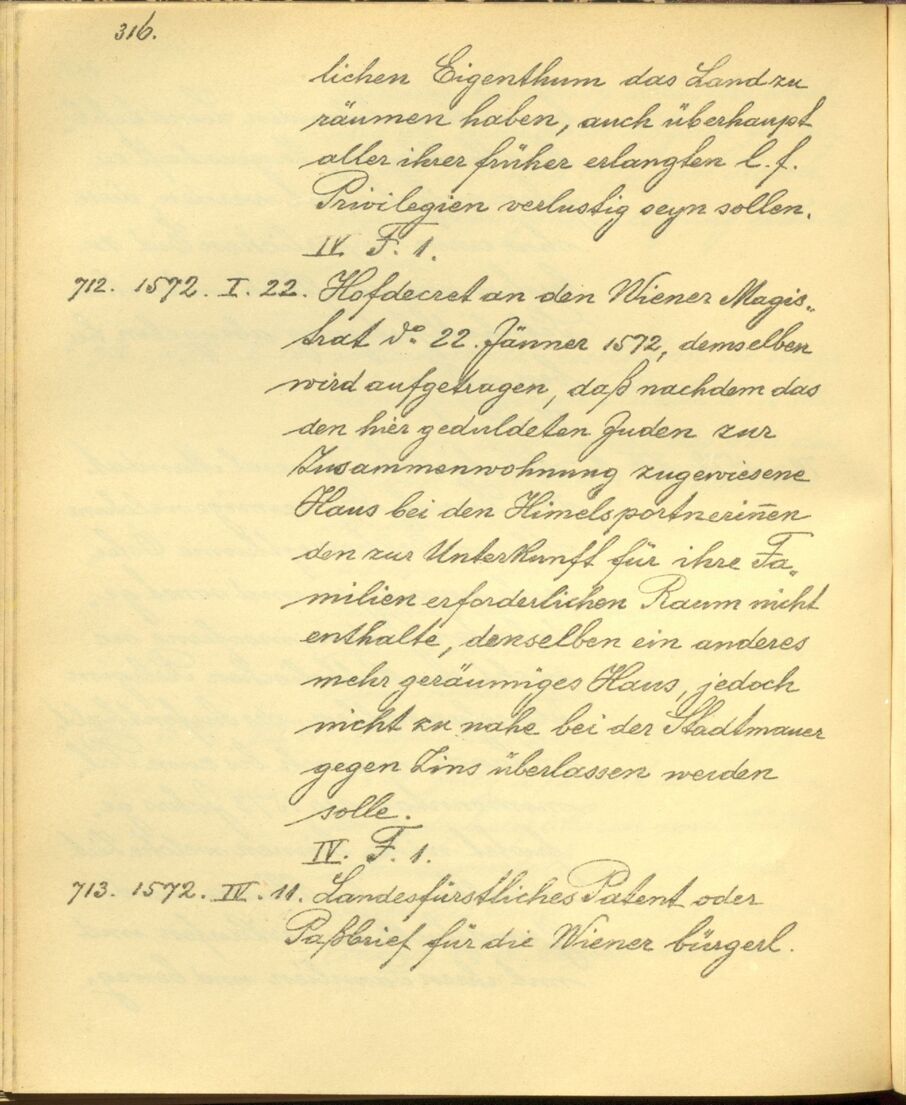 316.
lichen Eigenthum das Land zu
räumen haben, auch überhaupt
aller ihrer früher erlangten l. f.
Privilegien verlustig seyn sollen.
IV. F. 1.
712. 1572. I. 22. Hofdecret an den Wiener Magis„
trat do. 22. Jänner 1572, demselben
wird aufgetragen, daß nachdem das
den hier geduldeten Juden zur
Zusammenwohnung zugewiesene
Haus bei den Himelsportnerin̄en
den zur Unterkunft für ihre Fa„
milien erforderlichen Raum nicht
enthalte, denselben ein anderes
mehr geräumiges Haus, jedoch
nicht zu nahe bei der Stadtmauer
gegen Zins überlassen werden
solle.
IV. F. 1.
713. 1572. IV. 11. Landesfürstliches Patent oder
Paßbrief für die Wiener bürgerl.